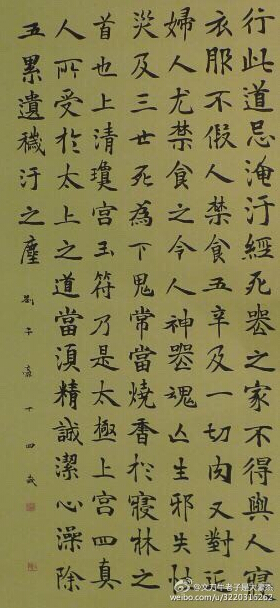 行此道忌淹汙經死喪之家不與人寢
衣服不假人禁食五辛及一切肉又對近
婦人尤禁食之令人神喪魂亡生邪失性
災及三世死為下鬼常當燒香於寢牀之
首也上清瓊宮玉符乃是太極上宮四真
人所受於太上之道當須精誠潔心澡除
五累遺穢汙之塵
十四歲
weibo.com/u/3220316262